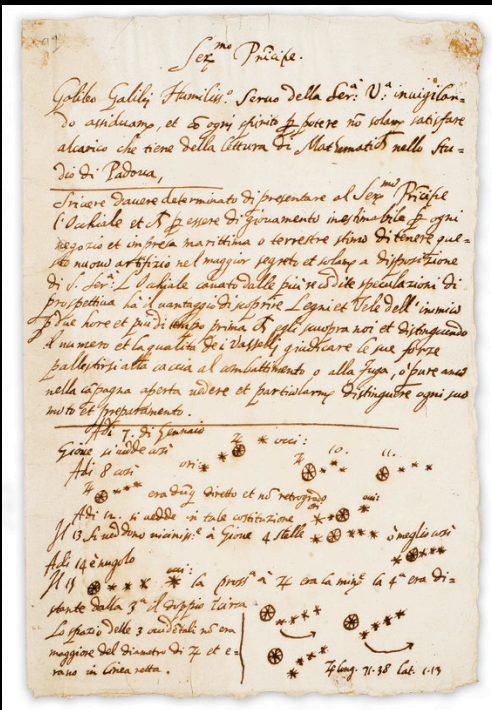 Ser.mo Principe.
Galileo Galilei Humiliss.o Servo della Ser.a V.a invigilan-
do assiduam.e, et cõ ogni spirito p potere nõ solam.e satisfare
alcarico che tiene della lettura di Mathematich nello stu-
dio di Padova,
Scrivere davere determinato di presentare al Ser.mo Principe
l'Occhiale et p essere di giovamento inestimabile p ogni
negozio et impresa marittima o terrestre stimo di tenere que-
sto nuovo artifizio nel maggior segreto et solam.e a disposizione
di S. Ser.a L'Occhiale cavato dalle più recondite speculazioni di
prospettiva ha il vantaggio di scoprire Legni et Vele dell'inimico
p due hore et più di tempo prima ch egli scuopra noi et distinguendo
il numero et la qualità dei Vasselli giudicare le sue forze
pallestirsi alla caccia al combattimento o alla fuga, o pure anco
nella cãpagna aperta vedere et particularm.e distinguere ogni suo
moto et preparamento.
Adi 7. di Gennaio
Giove si vedde così
Adi 8 così ori:
10. 11.
era dũq diretto et nõ retrogrado
Adi 12. si vedde in tale costituzione
Il 13 si veddono vicinis.e à Giove 4 stelle ò meglio così
Adi 14 è nugolo
Il 15 la pross.a à ♃ era la min.e la 4.a era di-
stante dalla 3.a il doppio circa
Lo spazio delle 3 occidẽtali nõ era
maggiore del diametro di ♃ et e-
rano in linea retta.
♃ long. 71.38 lat. 1.13